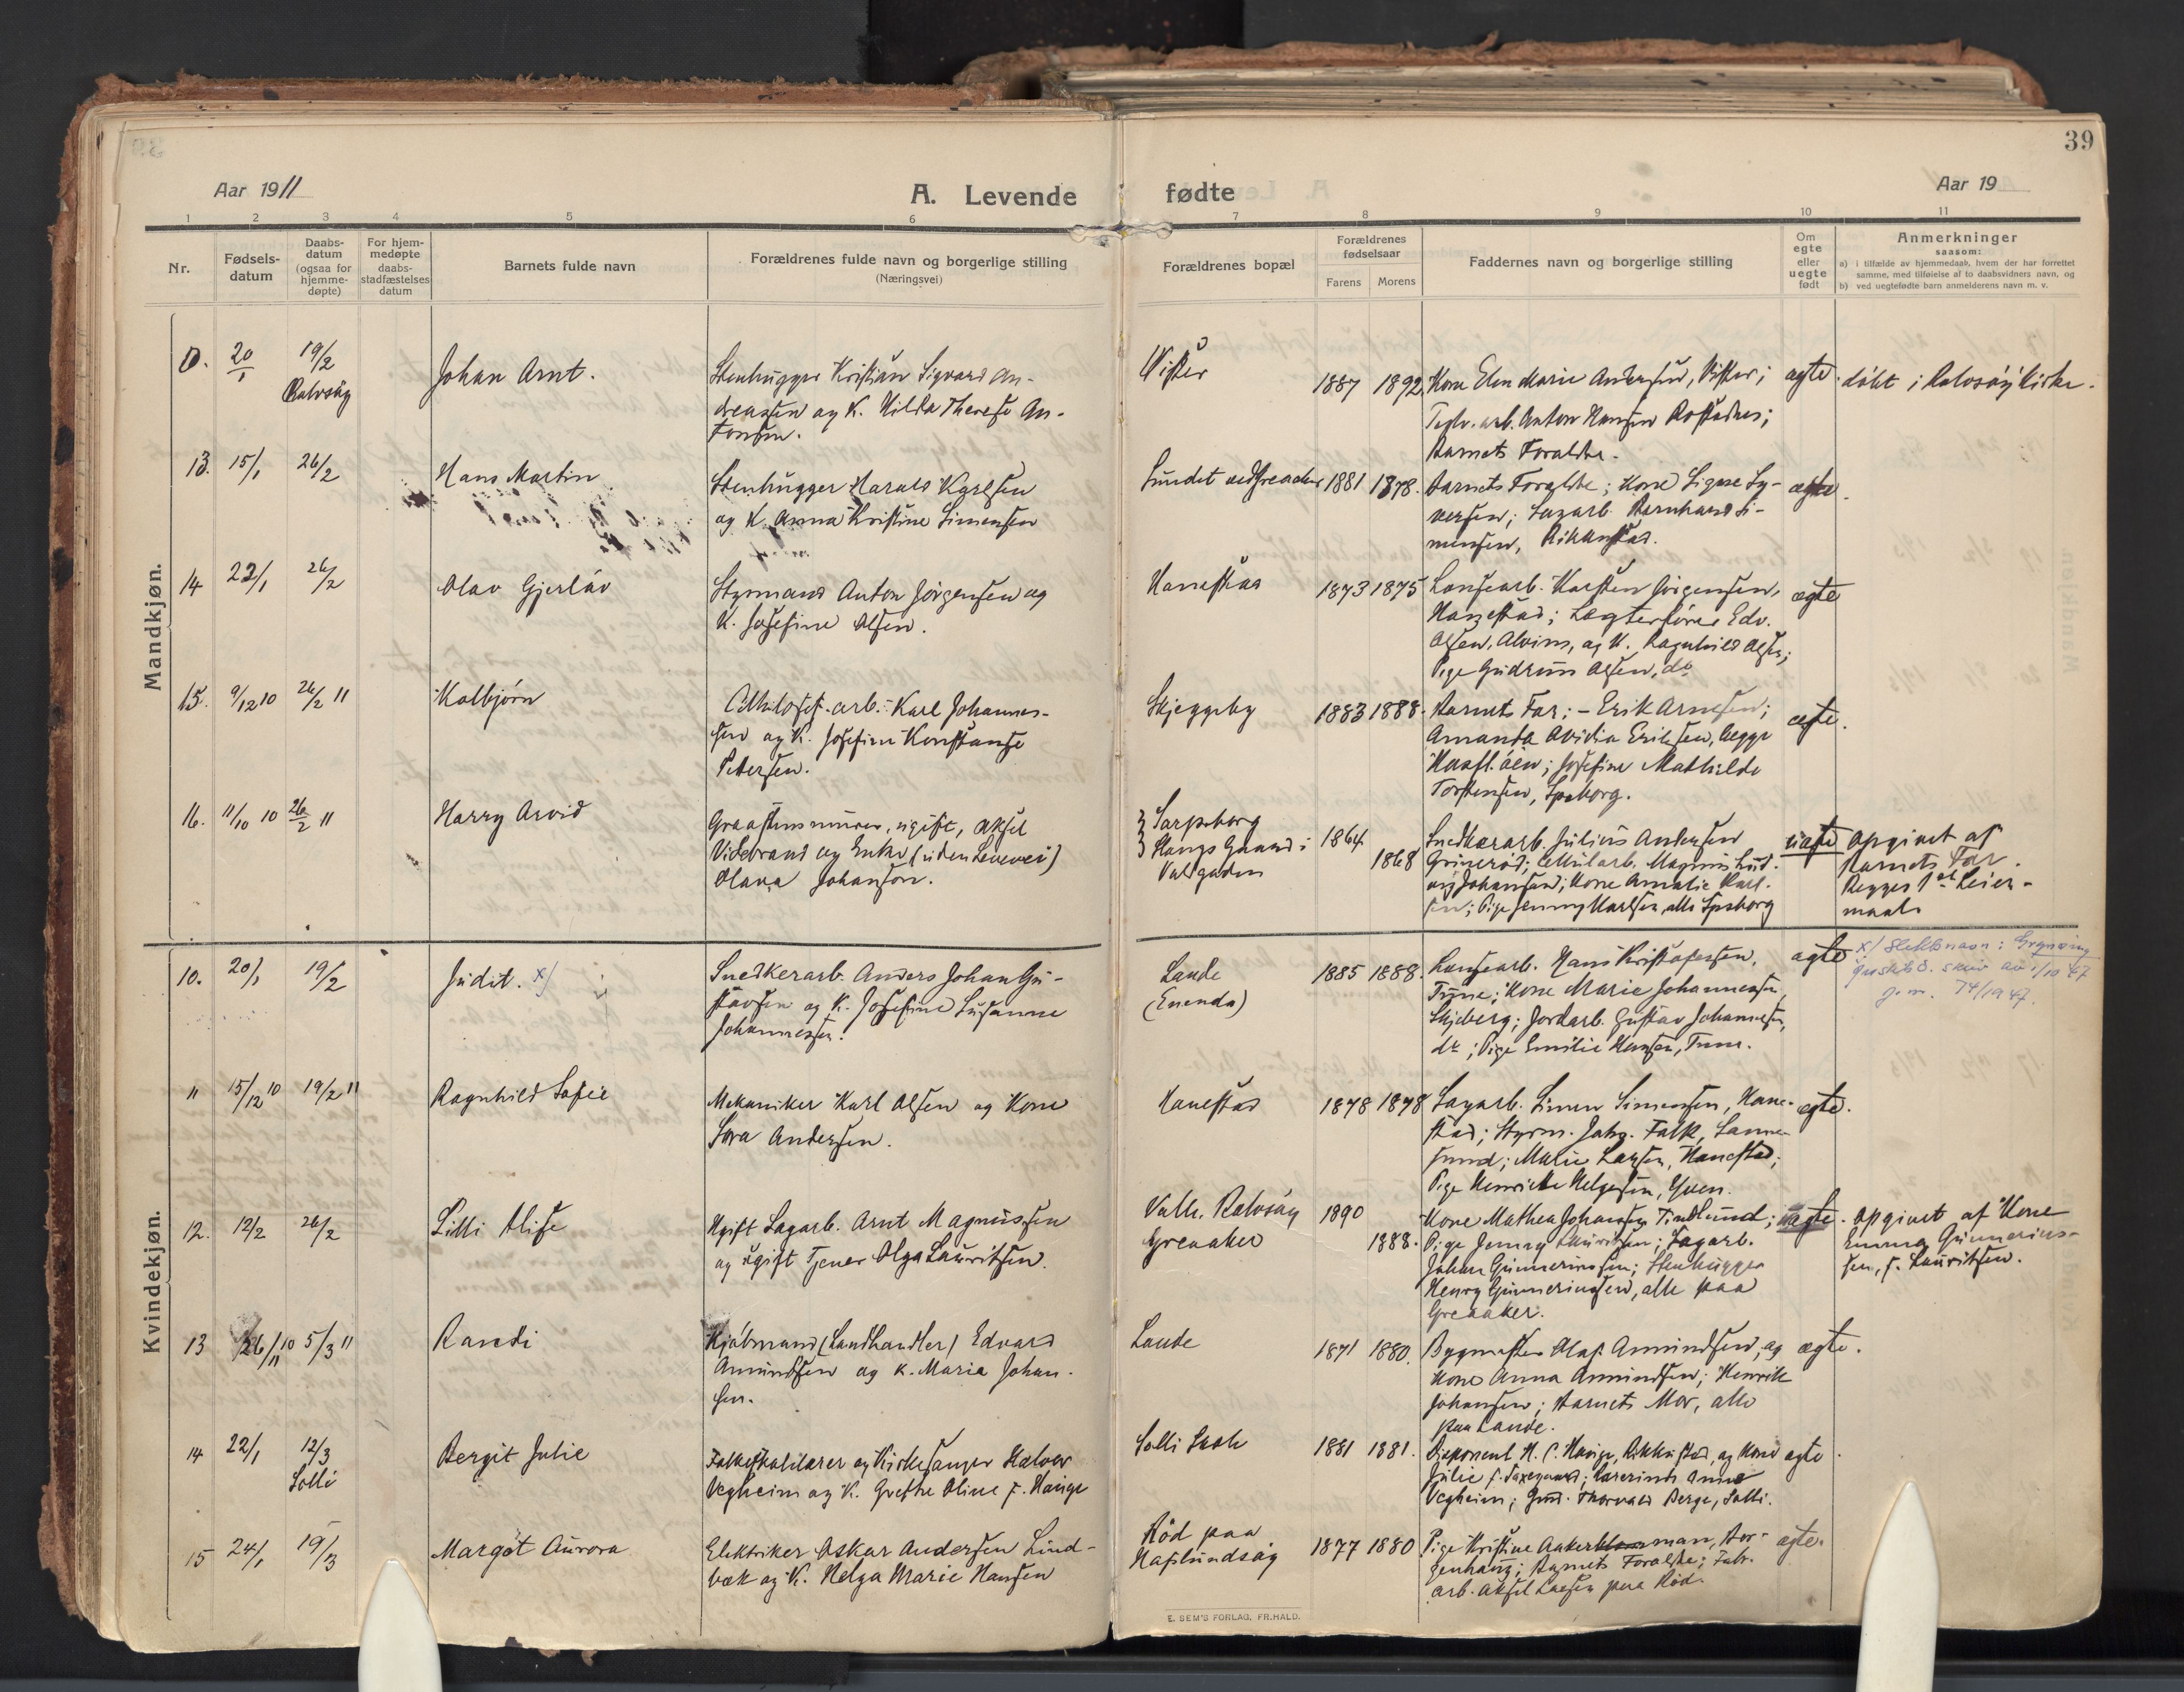 39
Aar 1911
A. Levende fødte
Aar 19
1 2 3 4 5 6 7 8 9 10 11
Nr.
Fødsels-
datum
Daabs-
datum
(ogsaa for
hjemme-
døpte)
For hjem-
medøpte
daabs-
stadfæstelses
datum
Barnets fulde navn
Forældrenes fulde navn og borgerlige stilling
(Næringsvei)
Forældrenes bopæl
Forældrenes
fødselsaar
Farens Morens
Faddernes navn og borgerlige stilling
Om
egte
eller
uegte
født
Anmerkninger
saasom:
a) i tilfælde av hjemmedaab, hvem der har forrettet
samme, med tilføielse af to daabsvidners navn, og
b) ved uegtefødte barn anmelderens navn m. v.
Mandkjøn.
20/1 19/2
Johan Arnt.
Stenhugger Kristian Sigvard An-
dreassen og K. Hilda Therese An-
tonsen.
Vister
1887 1892
Kone Elen Marie Andersen, Vister;
arb. Anton Hansen
Barnets Forældre.
egte
døbt i Rolvsøy Kirke.
13. 15/1 26/2
Hans Martin
Stenhugger Harald Karlsen
og K. Anna Kristine Simensen
Sundet ved Greaaker
1881 1878.
Barnets Forældre; Kone Signe Sy-
versen; Sagarb. Bernhard Si-
mensen,
egte
14 22/1 26/2
Olav Gjerløv
Styrmand Anton Jørgensen og
K. Josefine Olsen.
Hanestad
1873 1875
Lousearb. Karsten Jørgensen,
Hanestad; Lægterfører Edv.
Olsen, Alvim, og K. Ragnhild Olsen;
Pige Gudrun Olsen, do
egte
15. 9/12 10 26/2 11
Kolbjørn
arb. Karl Johannes-
sen og K. Josefine Konstanse
Petersen.
Skjeggeby
1883 1888.
Barnets Far; - Erik Arnesen;
Amanda Ovidia Eriksen, begge
Hasl.øen; Josefine Mathilde
Torstensen, Spsborg.
egte.
16. 11/10 10 26/2 11
Harry Arvid
Graastensmurer, ugift, Aksel
Videbrand og Enke (uden Levevei)
Olava Johanson.
Sarpsborg
Stangs Gaard i
Valgaden
1864
1868
Snedkerarb. Julius Andersen
Grinerød; Mularb. Magnus Lud-
vig Johansen; Kone Amalie Karl-
sen; Pige Jenny Karlsen, alle Spsborg
uegte
Opgivet af
Barnets Far.
Begges 1ste Leier-
maal.
Kvindekjøn.
10. 20/1 19/2
Judit. x)
Snedkerarb. Anders Johan Gu-
stavsen og K. Josefine Susanne
Johannessen.
Lande
(Enenda)
1885 1888.
Lousearb. Hans Kristofersen,
Tune; Kone Marie Johannessen
Skjeberg; Jordarb. Gustav Johannesen,
do; Pige Emilie Hansen, Tune.
egte
x) Slektsnavn:
skriv av 1/10 47
j.nr. 74/1947.
11 15/12 10 19/2 11
Ragnhild Sofie
Mekaniker Karl Olsen og Kone
Sara Andersen.
Hanestad
1878 1878
Sagarb. Simen Simensen, Hane-
stad; Styrm. Jahg. Falk, Sanne-
sund; Marie Larsen, Hanestad;
Pige Henriette Helgesen, Yven.
egte.
12. 12/2 26/2
Lilli Alise
Ugift Sagarb. Arnt Magnussen
og ugift Tjener Olga Lauritsen.
Valle, Rolvsøy
Greaaker
1890
1888.
Kone Mathea Johansen Tindlund;
Pige Jenny Lauritsen; Sagarb.
Johan Gunneriussen; Stenhugger
Henry Gunneriussen, alle paa
Greaaker.
uegte.
Opgivet af Kone
Emma Gunnerius-
sen, f. Lauritsen.
13 26/11 10 5/3 11
Randi
Kjøbmand (Landhandler) Edvard
Amundsen og K. Maria Johan-
sen.
Lande
1871 1880.
Bygmester Olaf Amundsen, og
Kone Anna Amundsen; Henrik
Johansen; Barnets Mor, alle
paa Lande.
egte.
14 22/1 12/3
Solli
Bergit Julie
Folkeskolelærer og Kirkesanger Halvor
Vegheim og K. Grethe Oline f. Hauge
Solli Skole
1881 1881.
Disponent H. C. Hauge, og Kone
Julie f. Lærerinde Anne
Vegheim; Gmd. Thorvald Berge, Solli.
egte
15 24/1 19/3
Margot Aurora
Elektriker Oskar Andersen Lind-
bæk og K. Helga Marie Hansen
Rød paa
Hafslundsøy
1877 1880
Pige Kristine Aakermann, Bor-
genhaug; Barnets Forældre; Fabr.
arb. Aksel Larsen paa Rød.
egte.
E. SEM'S FORLAG, FR.HALD.